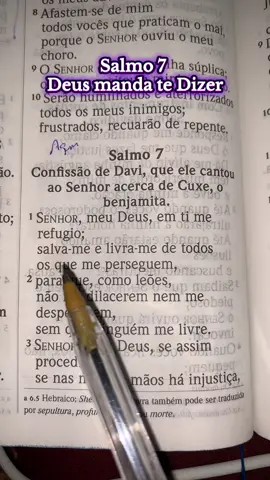 8 Afastem-se de mim
todos vocês que praticam o mal,
porque o SENHOR ouviu o meu
choro.
9 O SENHOR ha súplica;
Salmo 7
Deus manda te Dizer
10 Serão humilhados e aterrorizados
todos os meus inimigos;
frustrados, recuarão de repente.
Salmo 7
Confissão de Davi, que ele cantou
ao Senhor acerca de Cuxe, o
benjamita.
1 SENHOR, meu Deus, em ti me
refugio;
salva-me e livra-me de todos
os que me perseguem,
2 para que, como leões,
não dilacerem nem me
sem ninguém me livre.
3 SENHOR Deus, se assim
se nas mãos há injustiça,
a 6.5 Hebraico: também pode ser traduzida
por sepultura, morte.